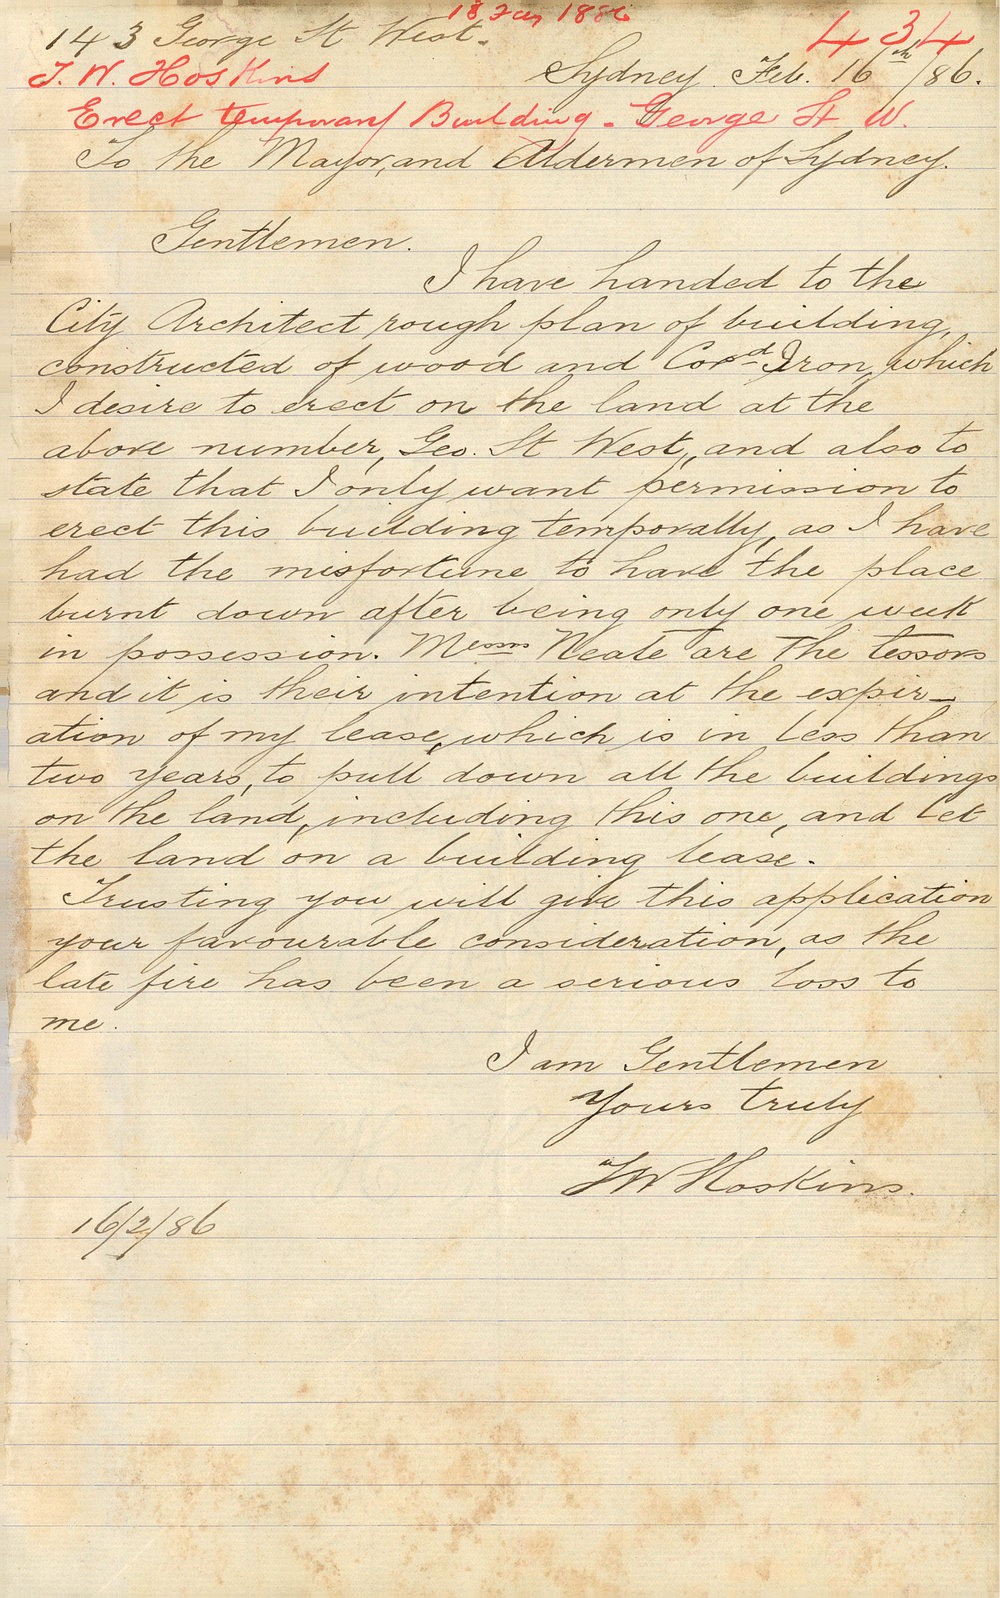 18 Feb 1886
143 George St West.
434
T. W. Hoskins
Sydney Feb. 16th/86.
Erect temporary Building - George St W.
To the Mayor, and Aldermen of Sydney.
Gentlemen.
I have handed to the
City Architect rough plan of building,
constructed of wood and Cord Iron, which
I desire to erect on the land at the
above number, Geo. St West, and also to
state that I only want permission to
erect this building temporally, as I have
had the misfortune to have the place
burnt down after being only one week
in possession. Messrs Neate are the lessors
and it is their intention at the expir-
ation of my lease, which is in less than
two years, to pull down all the buildings
on the land, including this one, and let
the land on a building lease.
Trusting you will give this application
your favourable consideration, as the
late fire has been a serious loss to
me.
I am Gentlemen
Yours truly
TW Hoskins.
16/2/86